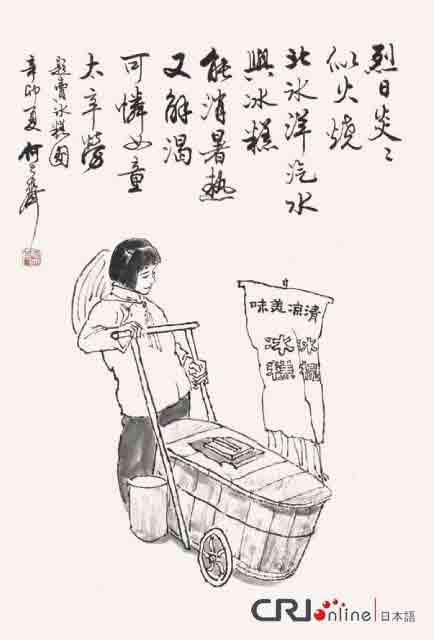 烈日炎〻
似火燒
北冰洋汽水
與冰糕
能消暑熱
又解渴
可憐女童
太辛勞
題賣冰糕圖
辛卯夏 何
清凉美味
冰棍
冰糕
CRI online 日本語